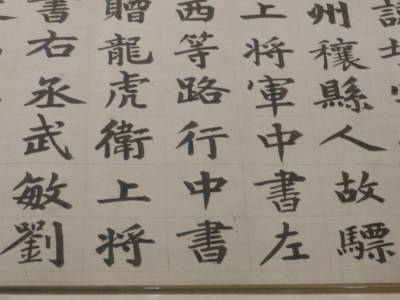 州穰縣人故驃
上將軍中書左
西等路行中書
贈龍虎衛上將
書右丞武敏劉